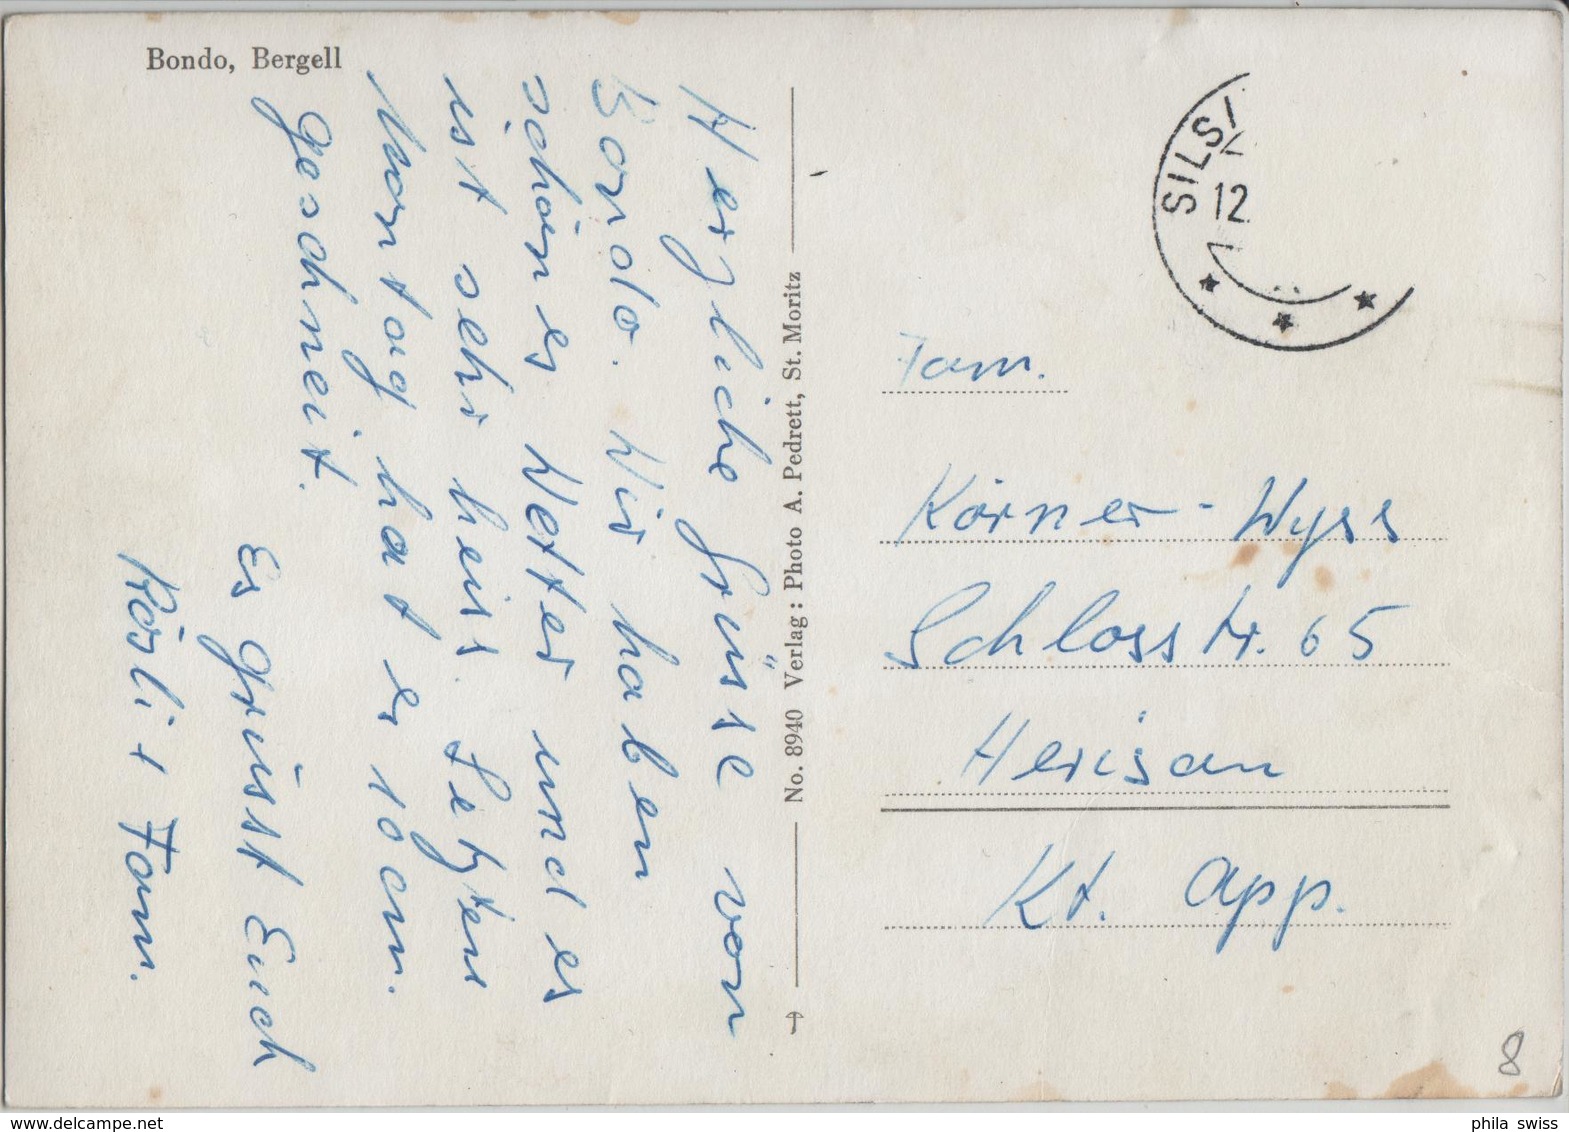 Bondo, Bergell
Herzliche Grüsse von
Bondo. Wir haben
schönes Wetter und es
ist sehr heiss. Letzten
Montag hat es 10 cm.
geschneit.
Es grüsst Euch
Rösli + Fam.
No. 8940 Verlag: Photo A. Pedrett, St. Moritz
SILS/
12.
Fam.
Körner-Wyss
Schlosstr. 65
Herisau
Kt. App.
8
delcampe.net
phila swiss